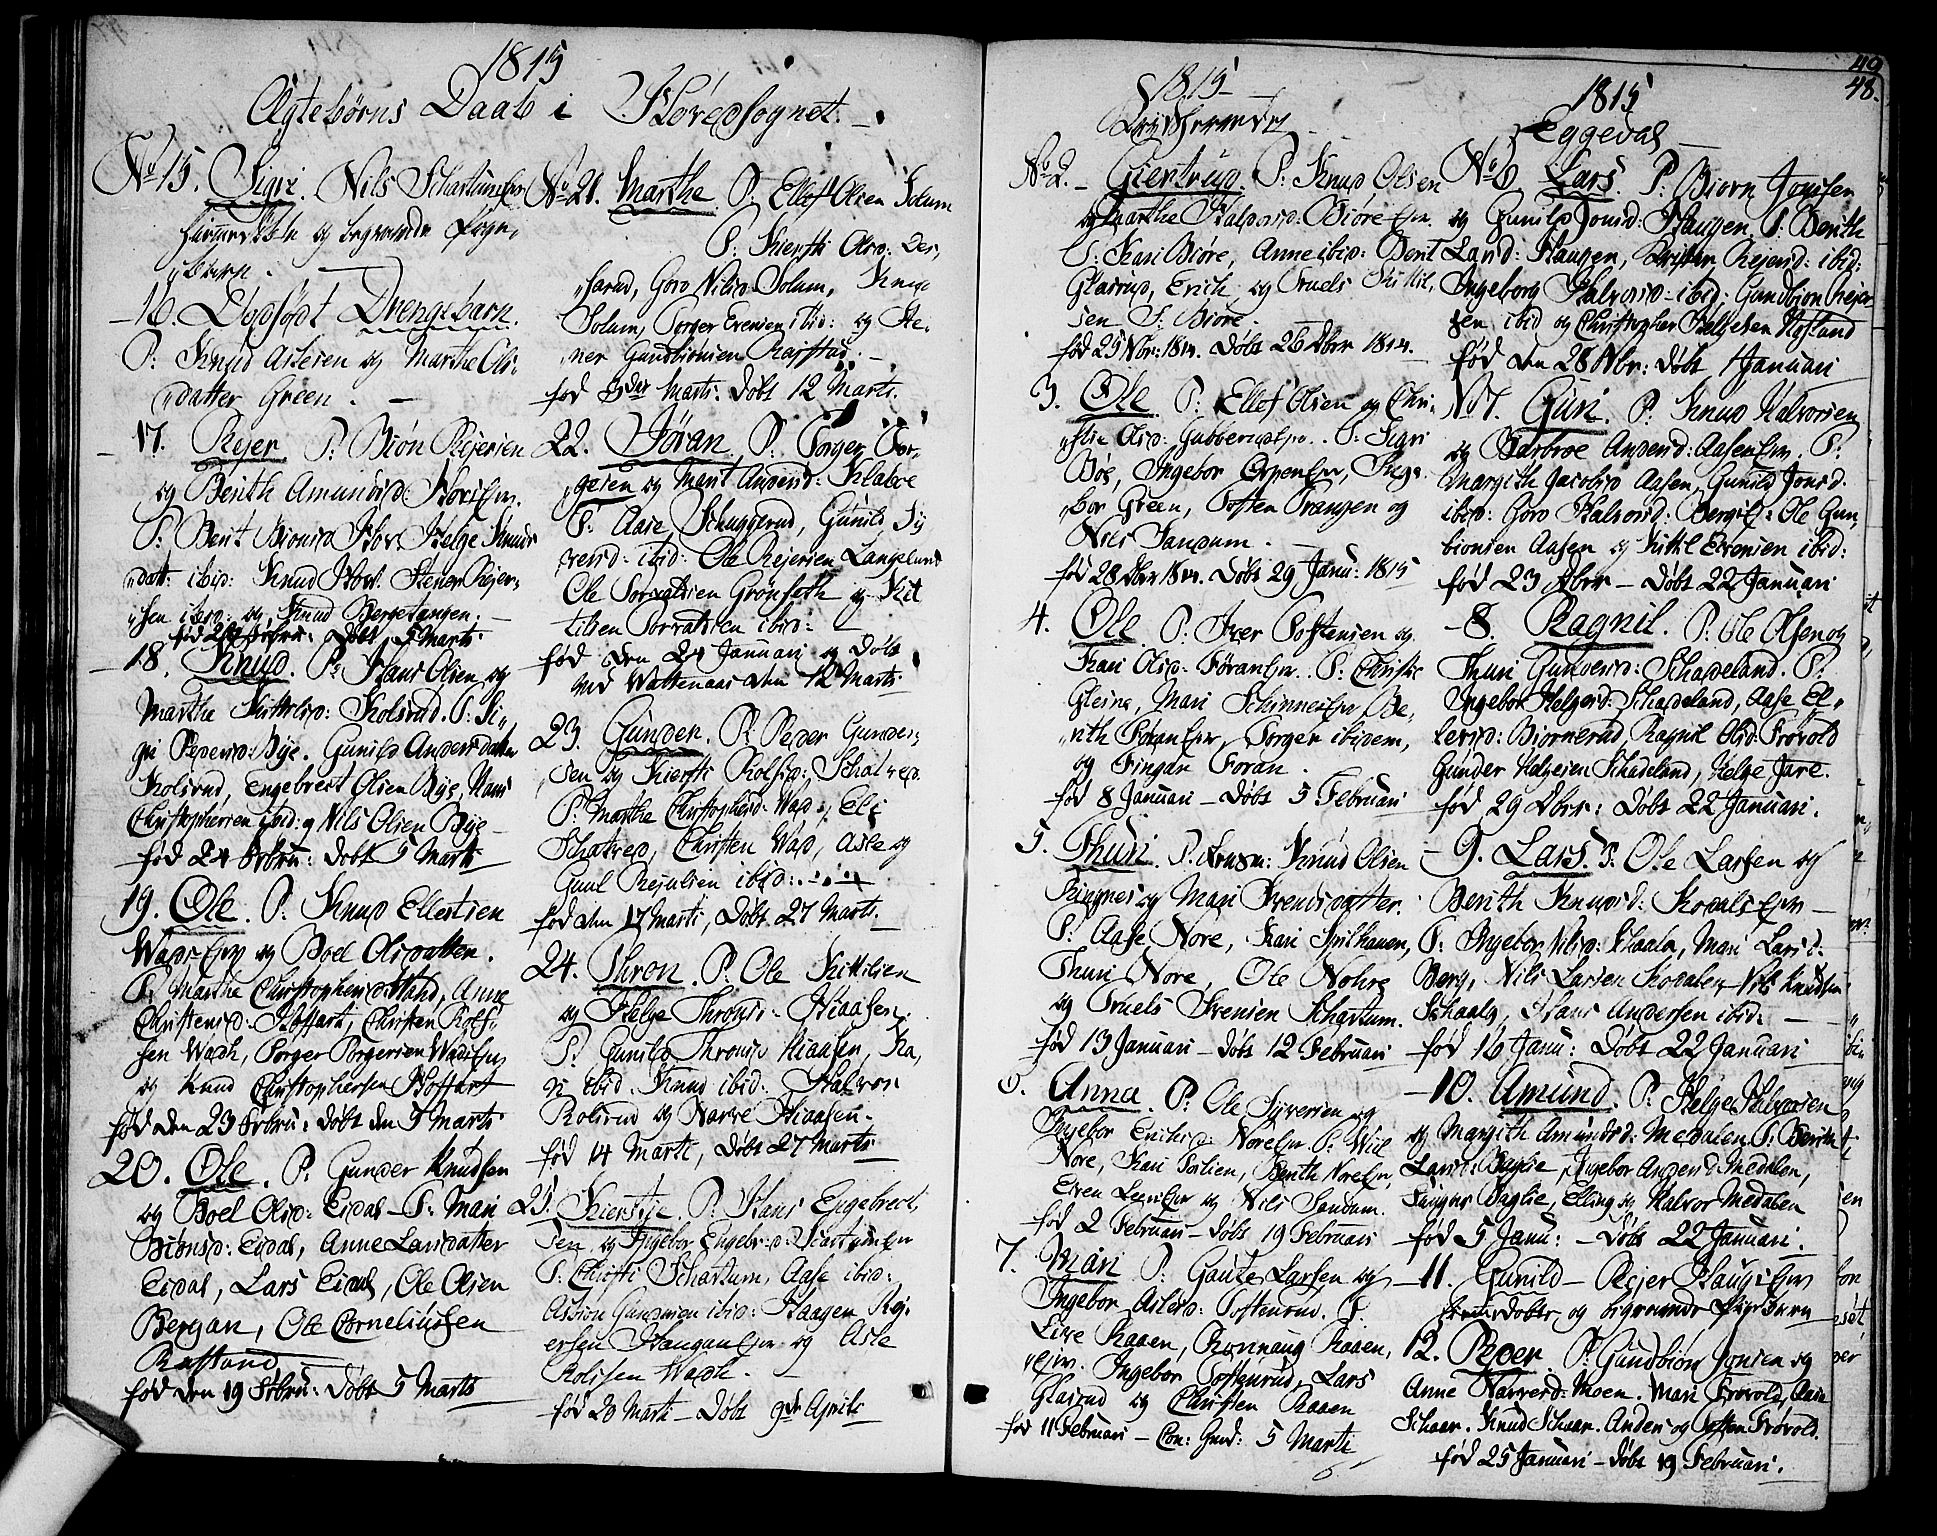 1815
Ægtebørns Daab i Hovedsognet.
No 15. Sigri. Nils Schartum Eier
hiemedøbte og begravede
16. Dødfødt Drengebarn.
P: Knud Aslesen og Marthe Ols-
datter Green.
17. Rejer. P: Biøn Rejersen
og Berith Amundsd:
P: Berit Biønsd Hov. Helge Knuds
datt: ibid: Knud Hovl. Stener Rejer-
sen ibid: og Knud Bergetangen.
fød 24 Febru: Døbt 5 Marts
18. Knud. P: Hans Olsen og
Marthe Kittelsd: Kolsrud. P: Si-
gri Pedersd: Bye. Gunild Andersdatter
Kolsrud, Engebrect Olsen Bye, Hans
Christophersen ibid: og Nils Olsen Bye
fød 24 Febru: døbt 5 Marts
19. Ole. P: Knud Ellestsen
Wads Eier og Boel Olsdatter.
P: Marthe Christophersd Wad, Anne
Christensd: Hoffart, Christen Rolf-
sen Wadh, Torger Torgersen Wads Eier
og Knud Christophersen Hoffart
fød den 23 Febru: døbt den 5 Marts
20. Ole. P: Gunder Knudsen
og Boel Olsd: Eidal P: Mari
Biönsd: Eidal, Anne Larsdatter
Eidal, Lars Eidal, Ole Olsen
Bergan, Ole Corneliussen
Rastand
fød den 19 Febru: Døbt 5 Marts
No 21. Marthe P: Ellef Olsen Solum
P: Kiersti Olsd:
Goro Nilsd: Solum, Knud
Solum, Torger Evensen ibid: og Ste-
ner Gundbiönsen Rafstad.
fød 3der Marts: Døbt 12 Marts.
22. Jöran. P: Torger Tor-
gesen og Marit Andersd: Klaboe
P: Aase Schuggerud, Gunild Sy
versd: ibid: Ole Rejersen Langelund
Ole Torvaldsen Grönseth og Kit
tilsen Torvaldsen ibid:
fød den 24 Januari og Døbt
ved Wattenaas den 12 Marts
23. Gunder. P: Peder Gunder-
sen og Kiersti Rolfsd: Schalred
P: Marthe Christophersd: Wad, Eli
Schalred, Christen Wad, Asle og
Guul Rejulsen ibid:
fød den 17 Marts, Døbt 27 Marts.
24. Thron. P. Ole Kittilsen
og Helge Thronsd: Kiaasen.
P: Gunild Thronsd Kiaasen, Ka-
ri ibid. Knud ibid. Halvor
Rolsrud og Narve Kiaasen.
fød 14 Marti, Døbt 27 Marts
25. Kierstje. P: Hans Engebrect-
sen og Ingebor Engebr:d: Schartum Eier
P: Christi Schartum, Aase ibid:
Asbiön Gundersen ibid: Haagen Rej-
ersen Haugan Eier og Asle
Rolfsen Wadh.
fød 20 Marti - Døbt 9de Aprils
1815
Krydsherred
No 2. Giertrud. P: Knud Olsen
og Marthe Halvorsd: Biöre Eier.
P: Kari Biöre, Anne ibid: Berit
Glasrud, Erich og Truels Kittil-
sen P: Biöre
fød 25 Nbr: 1814. Døbt 26 Dbr 1814.
3. Ole. P: Ellef Olsen og Chri-
stie Olsd: Gubberud P: Sigri
Böe, Ingebor Eier, Inge-
bor Green, Tosten Frangen og
Nils Sandum.
fød 28 Dbr 1814. Døbt 29 Janu: 1815
4. Ole. P: Iver Tostensen og
Kari Olsd: Föran Eier. P: Christie
Gleine, Mari Skinnes Eier Be-
rith Föran Eier, Torger ibidem,
og Fingar Foran.
fød 8 Januari - Døbt 5 Februari
5. Thuri. P. Knud Olsen
Ringnes og Mari Svendsdatter.
P: Aase Nore, Kari Spilhauen,
Thuri Nore, Ole Nohre
og Truels Svensen Schartum.
fød 13 Januari - Døbt 12 Februari
6. Anna. P: Ole Syversen og
Ingebor Erichsd: Nore Eier P:
Nore, Kari Berith Nore Eier,
Even Leen Eier og Nils Sandum.
fød 2 Februari - Døbt 19 Februari
7. Mari P: Gaute Larsen og
Ingebor Aslesd: Tostenrud. P:
Live Raaen, Rannaug Raaen,
Ingebor Tostenrud, Lars
Glasrud og Christen Raaen
fød 11 Februari - Con: Grud: 5 Marti
49
48.
1815
Eggedal
No 6 Lars. P: Biorn Jonssen
og Gunild Jonsd: Haugen. P: Berith
Larsd: Haugen, Kirsten Rejersd: ibid:
Ingeborg Halvorsd ibid: Gundbion Rejer
sen ibid og Christopher Helgesen Hofland
fød den 28 Nbr: Døbt 1 Januari
No 7. Guri. P. Knud Halvorsen
og Barbroe Andersd: Aasen Eier. P:
Margith Jacobsd Aasen, Gunild Jonsd.
ibid: Goro Halvorsd: Ole Gun-
bionsen Aasen og Kittil Evensen ibid:
fød 23 Dbr - Døbt 22 Januari
8. Ragnil. P. Ole Olsen og
Thuri Gundersd: Schadeland. P.
Ingebor Helgesd: Schadeland, Aase El-
levsd: Biornerud, Ragnil Olsd: Frövold
Gunder Helgesen Schadeland, Helge Jare.
fød 29 Dbr: Döbt 22 Januari.
9. Lars. P. Ole Larsen og
Berith Knudsd: Kodals Eier
P: Ingebor Nilsd: Schaale, Mari Larsd:
Berg, Nils Larsen Kodalen, Nils Knudsen
Schaale, Hans Andersen ibid:
fød 16 Janu: Døbt 22 Januari
10. Amund. P: Helge Halvorsen
og Margith Amundsd: Medalen P: Berith
Larsd: Daglie, Ingebor Andersd Medalen,
Daglie, Elling og Halvor Medalen
fød 5 Janu: - Døbt 22 Januari.
11. Gunild - Rejer Haugs Eier
døbte og begravede Pigebarn
12. Peder P: Gundbion Jonsen og
Anne Narvesd: Moen. Mari Frövold,
Schaar. Knud Schaar. Anders og Tosten Frövold.
fød 25 Januari - døbt 19 Februari.